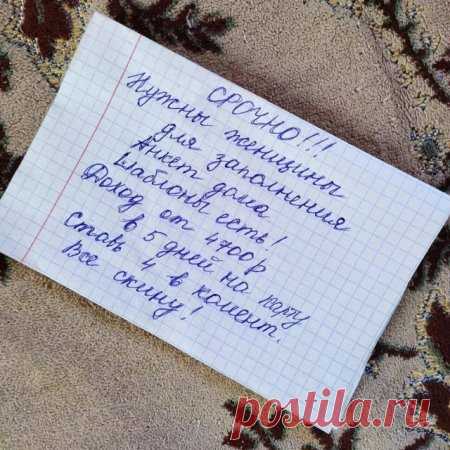 СРОЧНО!!!
Нужны женщины
для заполнения
Анкет дома
Шаблоны есть!
Доход от 4700р
в 5 дней на карту
Ставь 4 в комент.
Все скину!
postila.ru